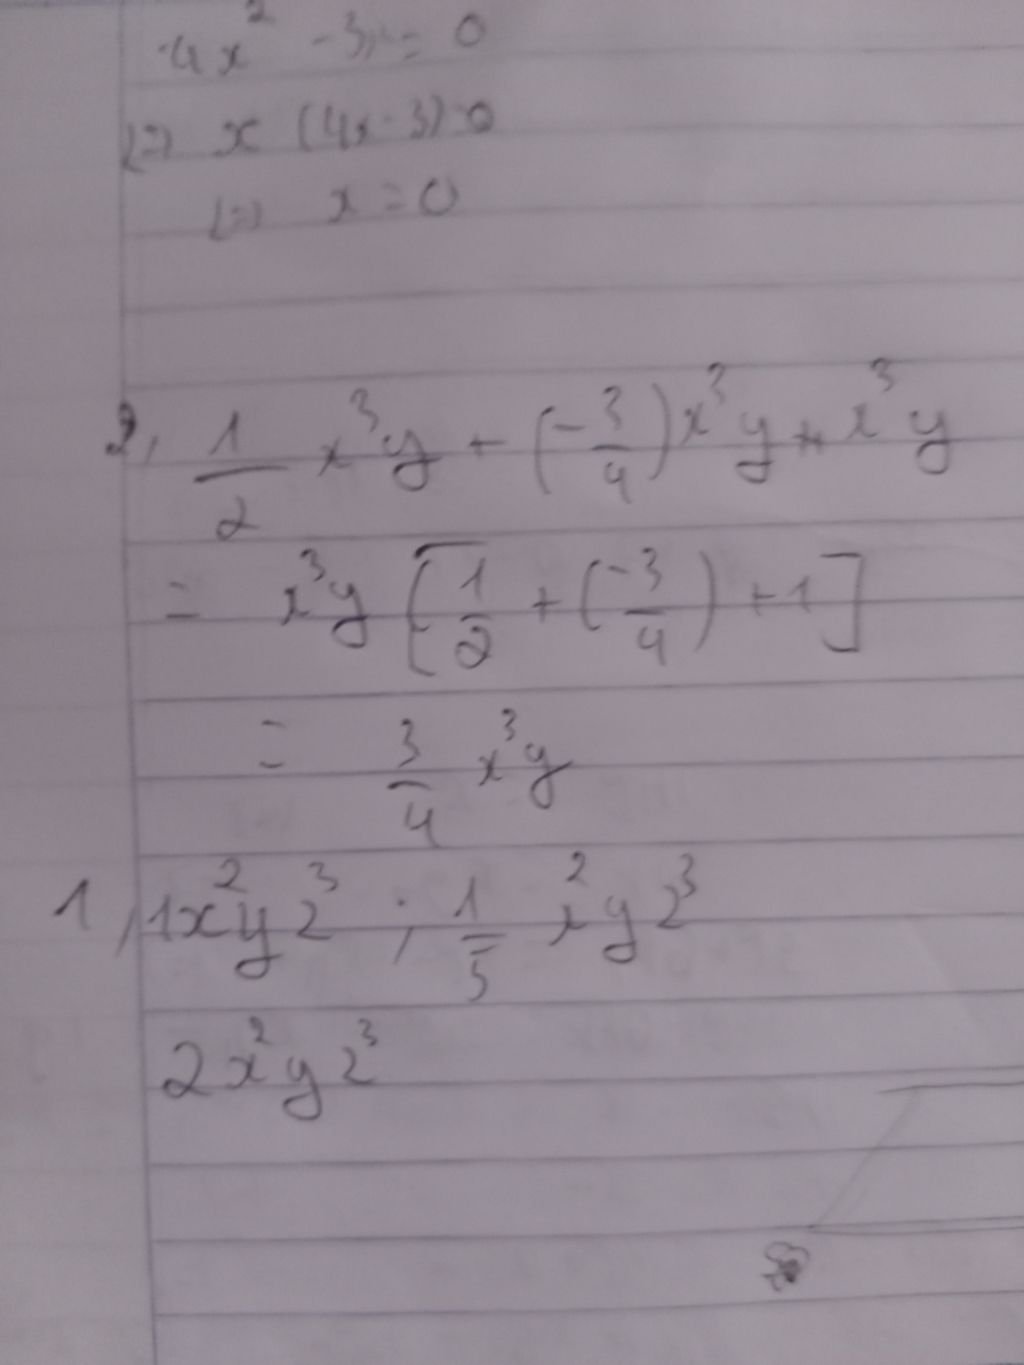 4x² - 3x = 0
(=) x (4x - 3) = 0
(=) x = 0
2, 1/2 x³y + (-3/4) x³y + x³y
= x³y [1/2 + (-3/4) + 1]
= 3/4 x³y
1, 1x²yz³ ; 1/5 x²yz³
2x²yz³